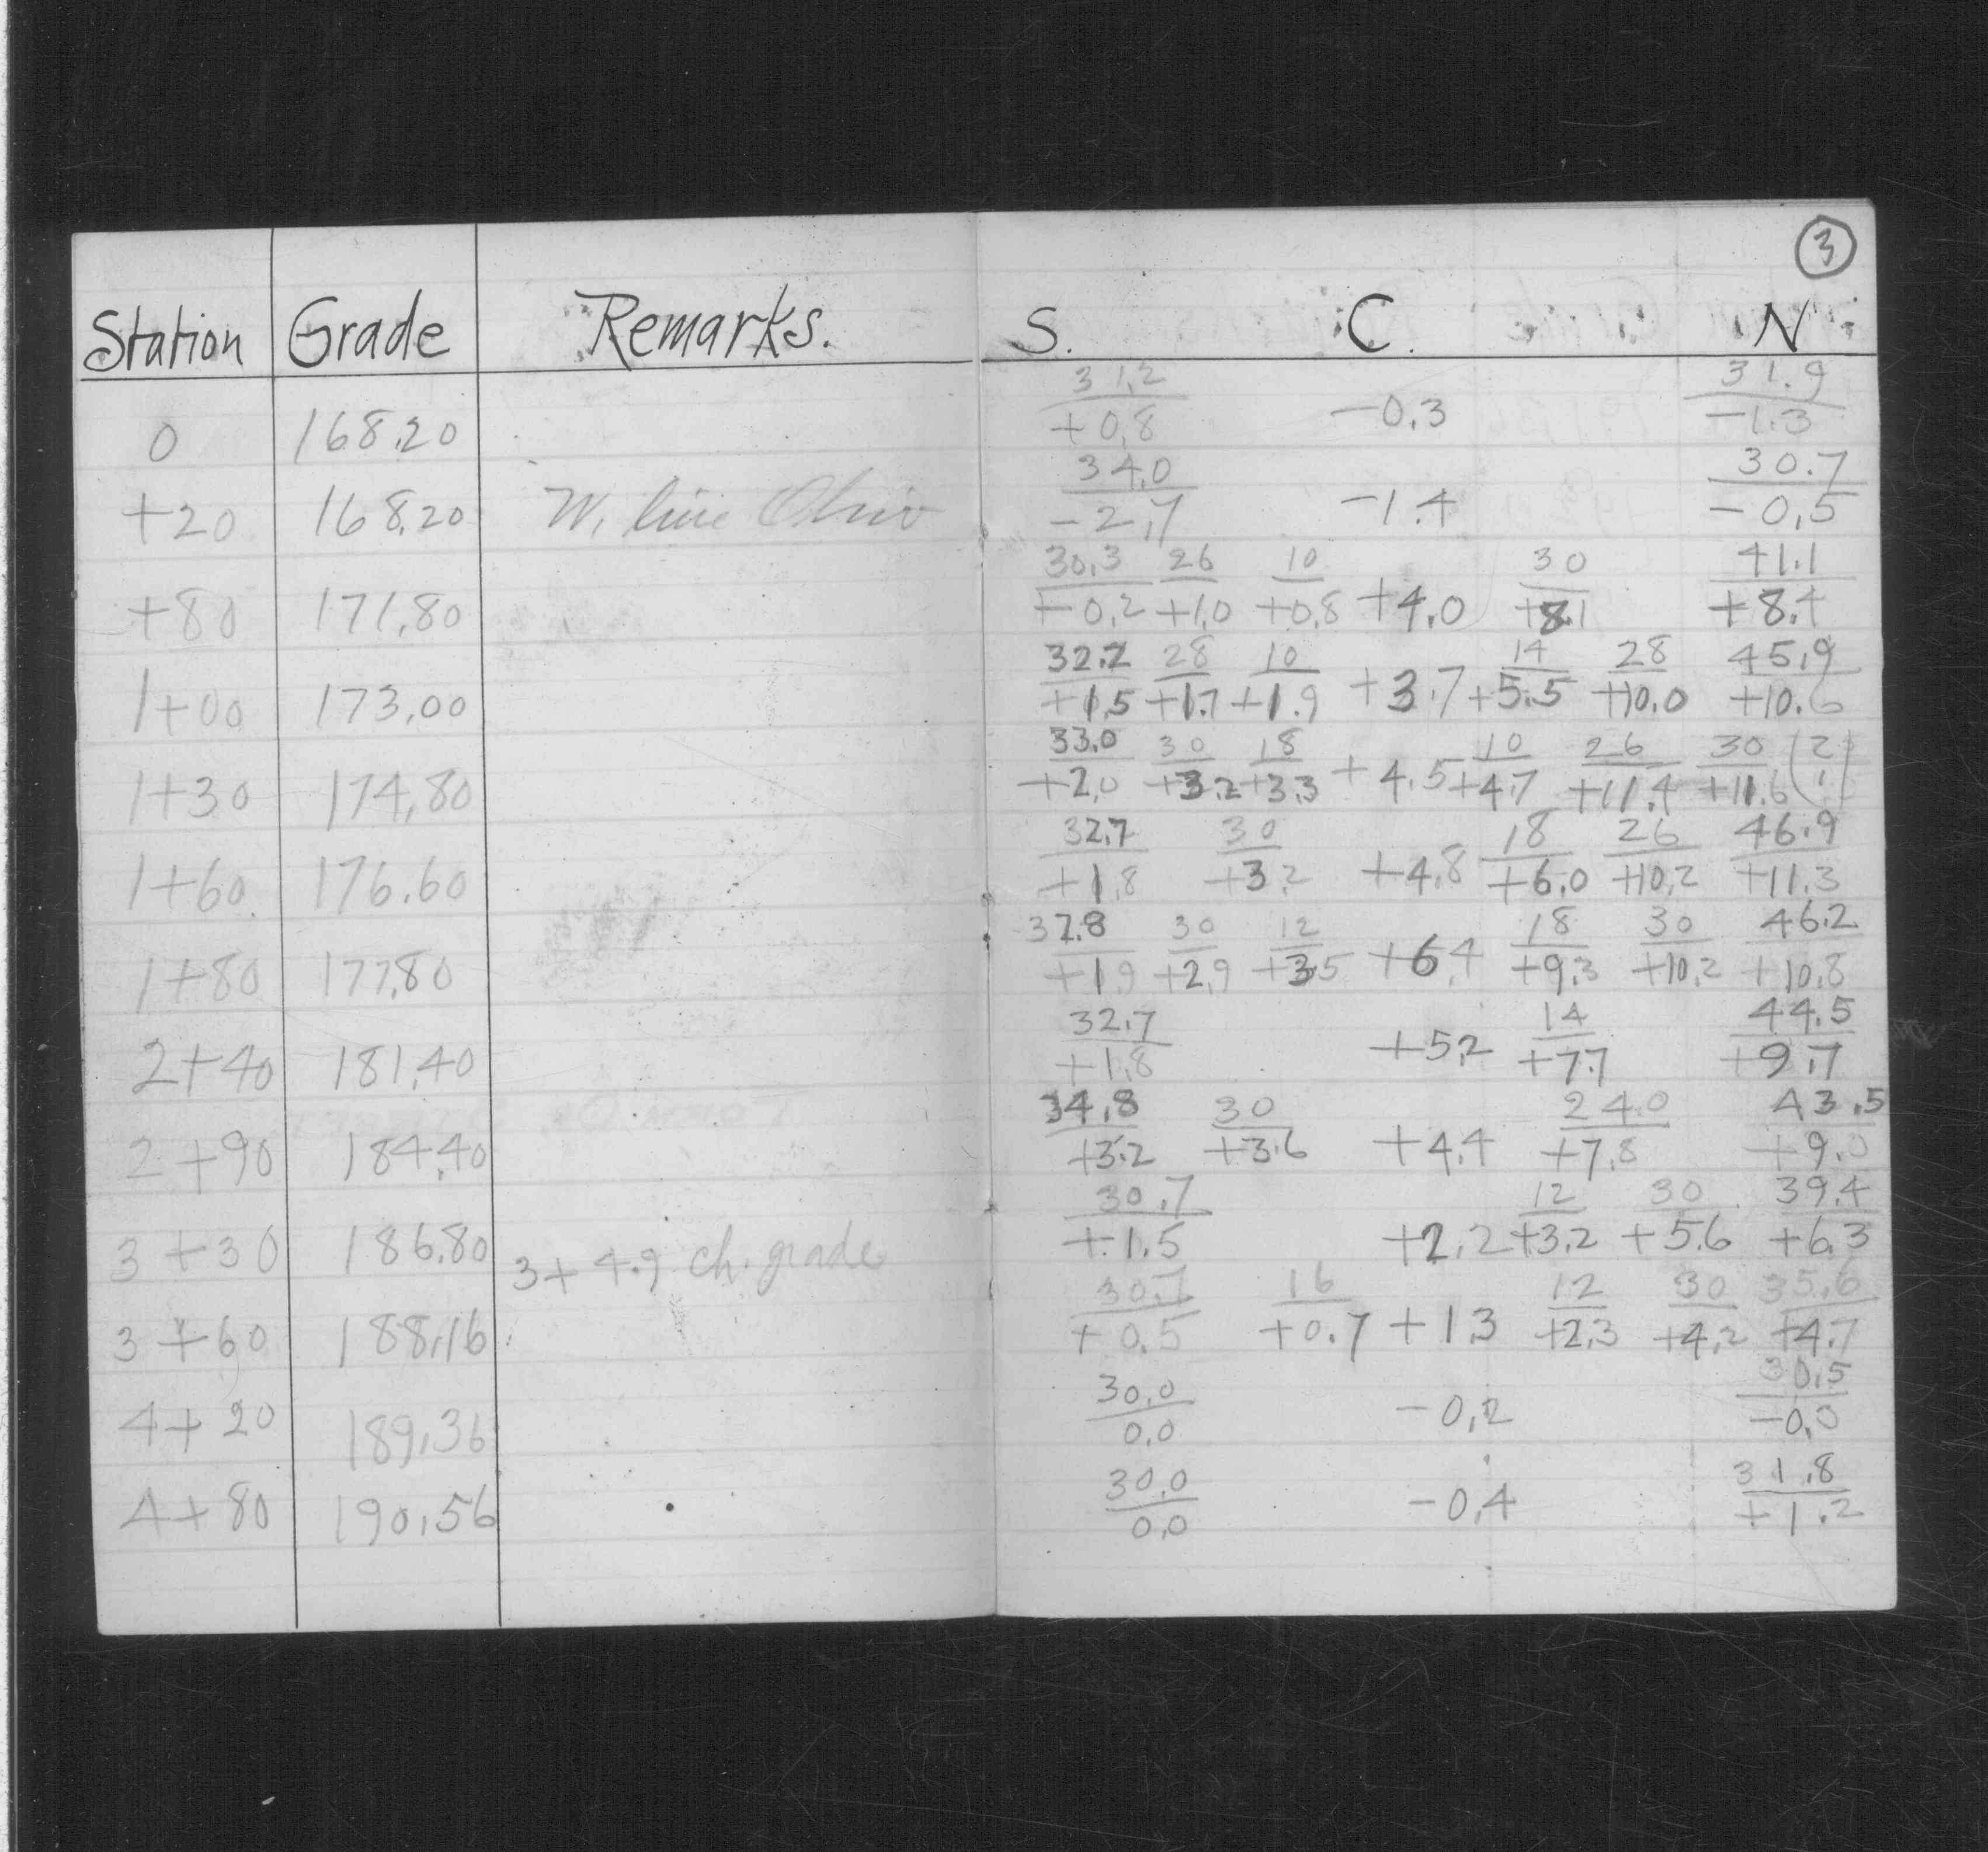 3
Station Grade Remarks. S. C. N
31.2 31.9
0 168.20 +0.8 -0.3 -1.3
34.0 30.7
+20 168.20 W. line Ohio -2.7 -1.4 -0.5
30.3 26 10 30 41.1
+80 171.80 +0.2 +1.0 +0.8 +4.0 +8.1 +8.4
32.2 28 10 14 28 45.9
1+00 173.00 +1.5 +1.7 +1.9 +3.7 +5.5 +10.0 +10.6
33.0 30 18 10 26 30 (2
1+30 174.80 +2.0 +3.2 +3.3 +4.5 +4.7 +11.4 +11.6 1)
32.7 30 18 26 46.9
1+60 176.60 +1.8 +3.2 +4.8 +6.0 +10.2 +11.3
32.8 30 12 18 30 46.2
1+80 177.80 +1.9 +2.9 +3.5 +6.4 +9.3 +10.2 +10.8
32.7 14 44.5
2+40 181.40 +1.8 +5.2 +7.7 +9.7
34.8 30 24.0 43.5
2+90 184.40 +3.2 +3.6 +4.4 +7.8 +9.0
30.7 12 30 39.4
3+30 186.80 3+4.9 ch. grade +1.5 +2.2 +3.2 +5.6 +6.3
30.7 16 12 30 35.6
3+60 188.16 +0.5 +0.7 +1.3 +2.3 +4.2 +4.7
30.0 30.5
4+20 189.36 0.0 -0.2 -0.0
30.0 31.8
4+80 190.56 0.0 -0.4 +1.2